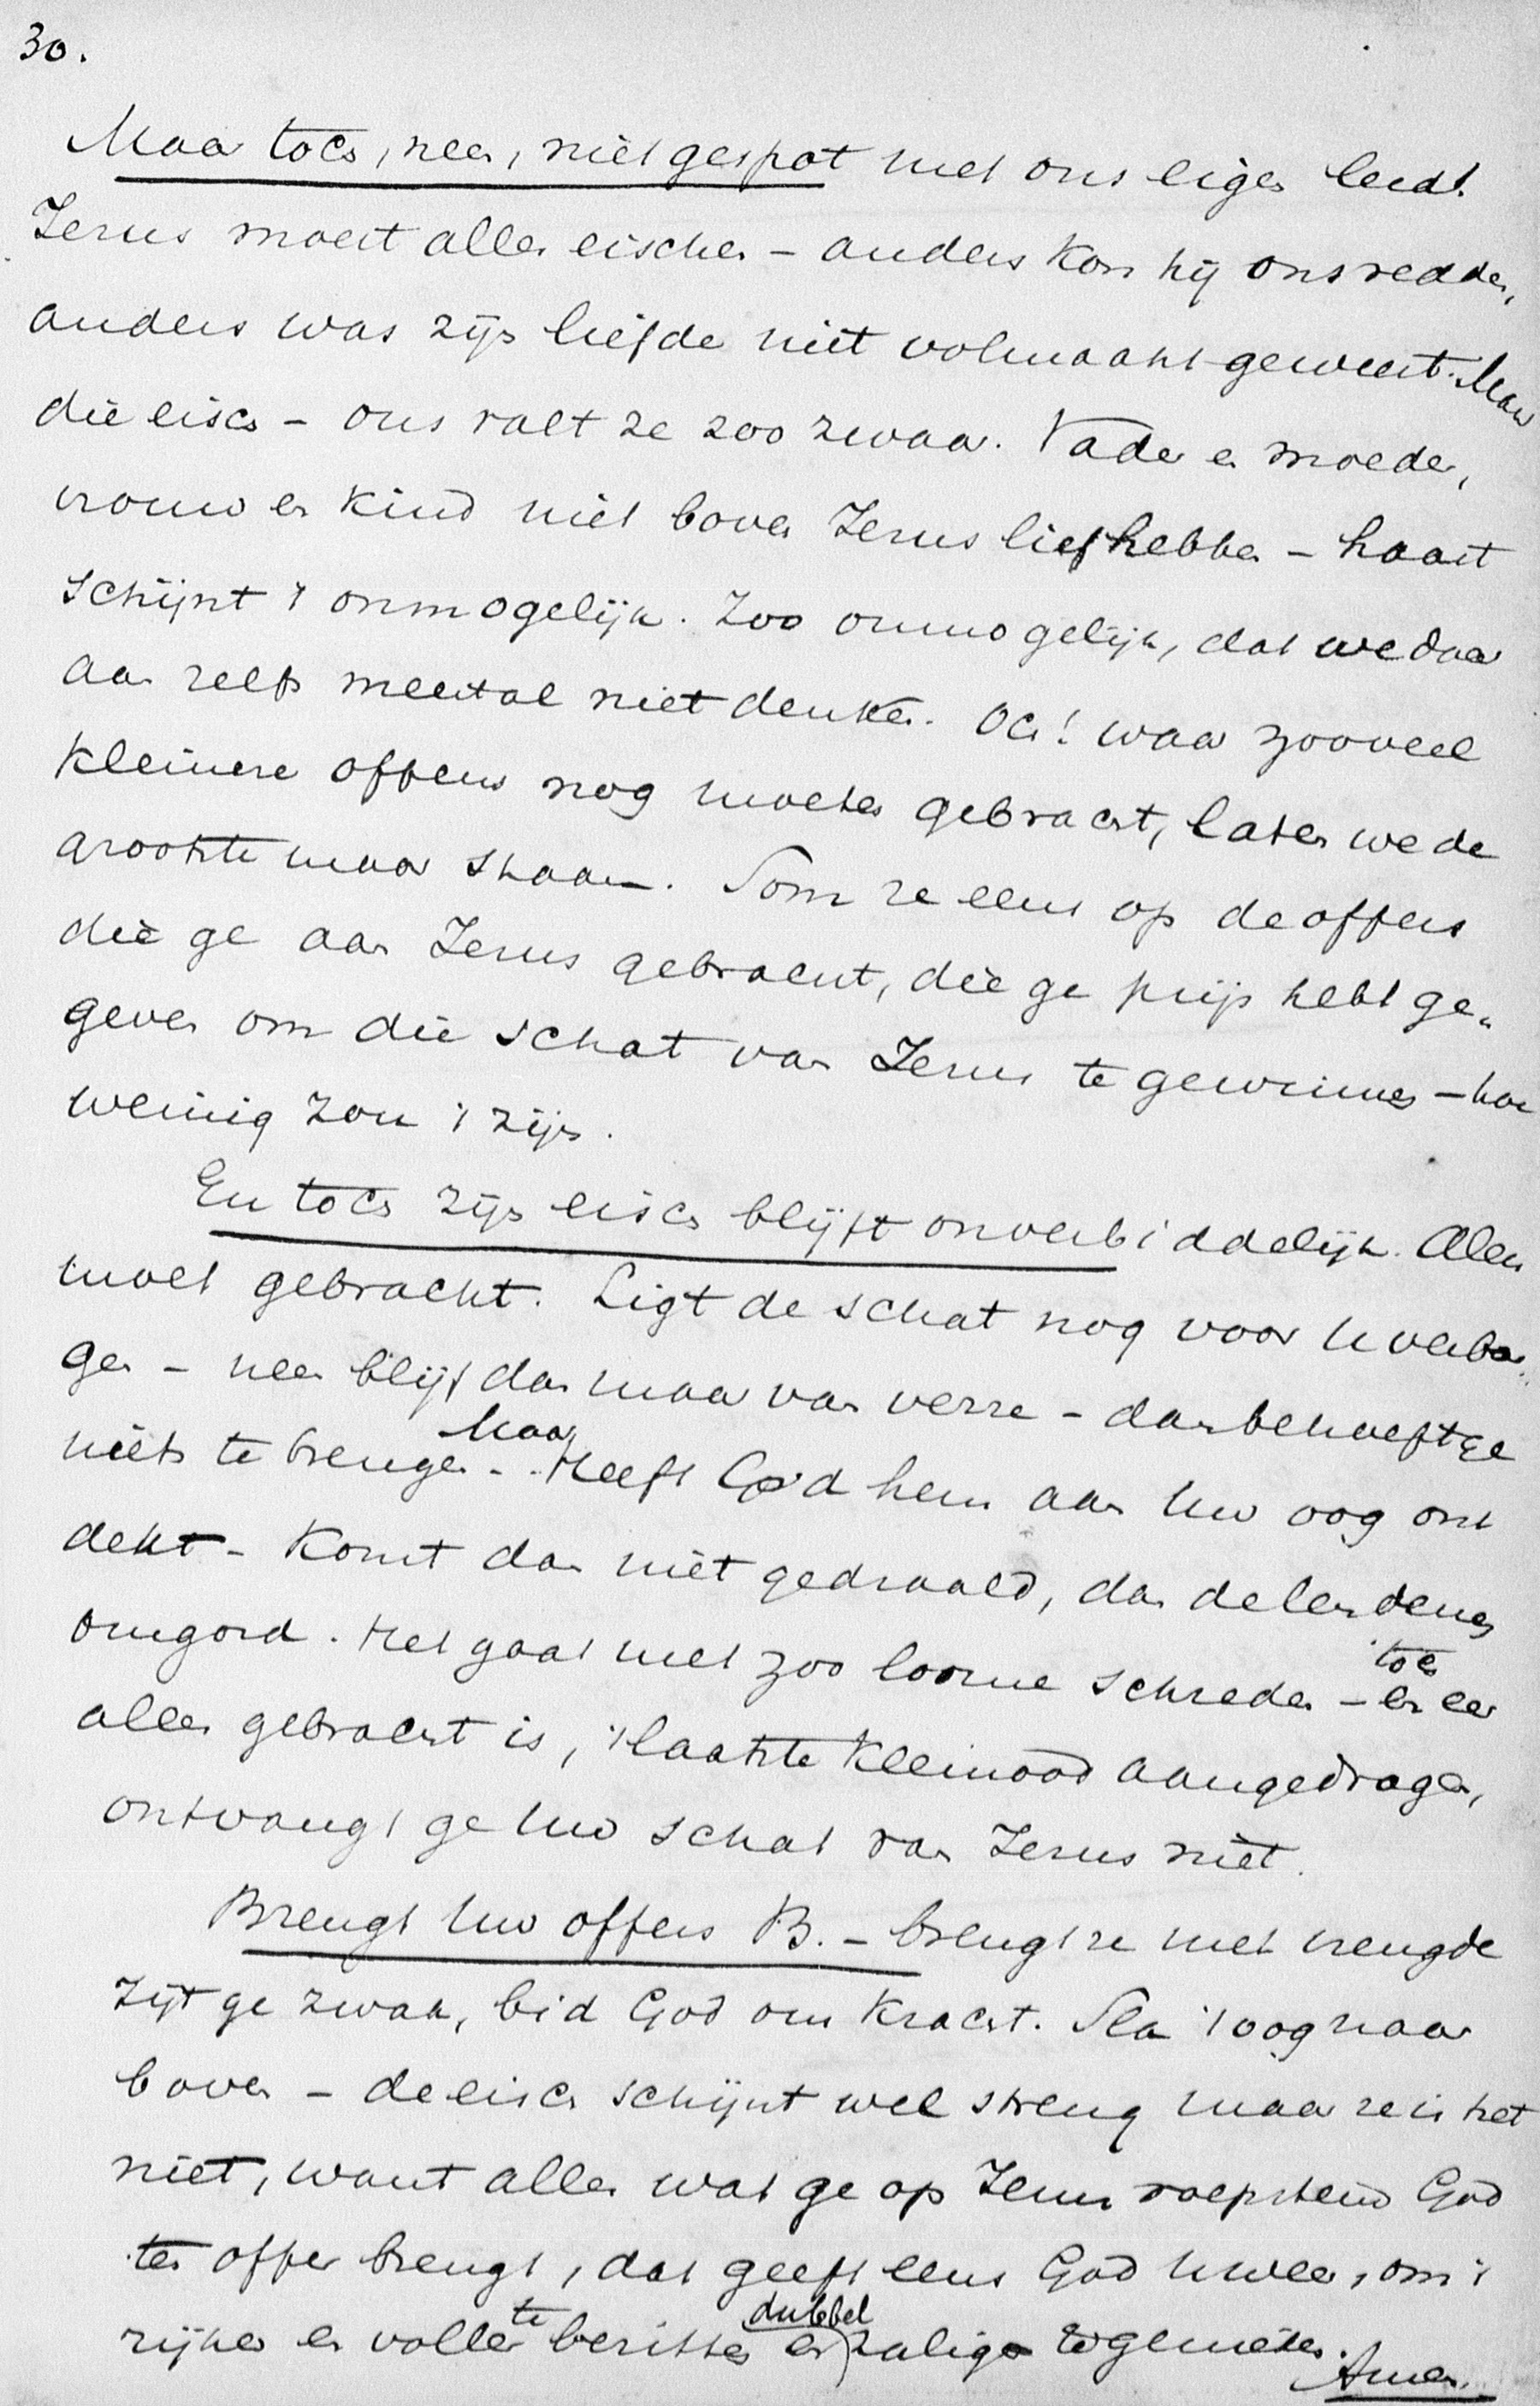 30.
Maar toch, neen, niet gespot met ons eigen leed!
Jezus moest alles eischen – anders kon hij ons redden,
anders was zijn liefde niet volmaakt geweest. Maar
die eisch – ons valt ze zoo zwaar. Vader en moeder,
vrouw en kind niet boven Jezus liefhebben – haast
schijnt 't onmogelijk. Zoo onmogelijk, dat we daar
aan zelfs meestal niet denken. Och! waar zooveel
kleinere offers nog moeten gebracht, laten we de
grootste maar staan. Som ze eens op de offers
die ge aan Jezus gebracht, die ge prijs hebt ge-
geven om die schat van Jezus te gewinnen – hoe
weinig zou 't zijn.
En toch zijn eisch blijft onverbiddelijk. Alles
moet gebracht. Ligt de schat nog voor U verbor-
gen – neen blijf dan maar van verre – dan behoeft ge
niets te brengen – Maar Heeft God hem aan Uw oog ont
dekt – Komt dan niet gedraald, dan de lendenen
omgord. Het gaat met zoo loome schreden – toch en eer
alles gebracht is, 't laatste kleinood aangedragen,
ontvangt ge Uw schat van Jezus niet.
Brengt Uw offers B. – brengt ze met vreugde
Zijt ge zwak, bid God om kracht. Sla 't oog naar
boven – de eisch schijnt wel streng maar ze is het
niet, want alles wat ge op Jezus roepstem God
ten offer brengt, dat geeft eens God U weer, om 't
rijker en voller te bezitten en dubbel zalig te genieten.
Amen.